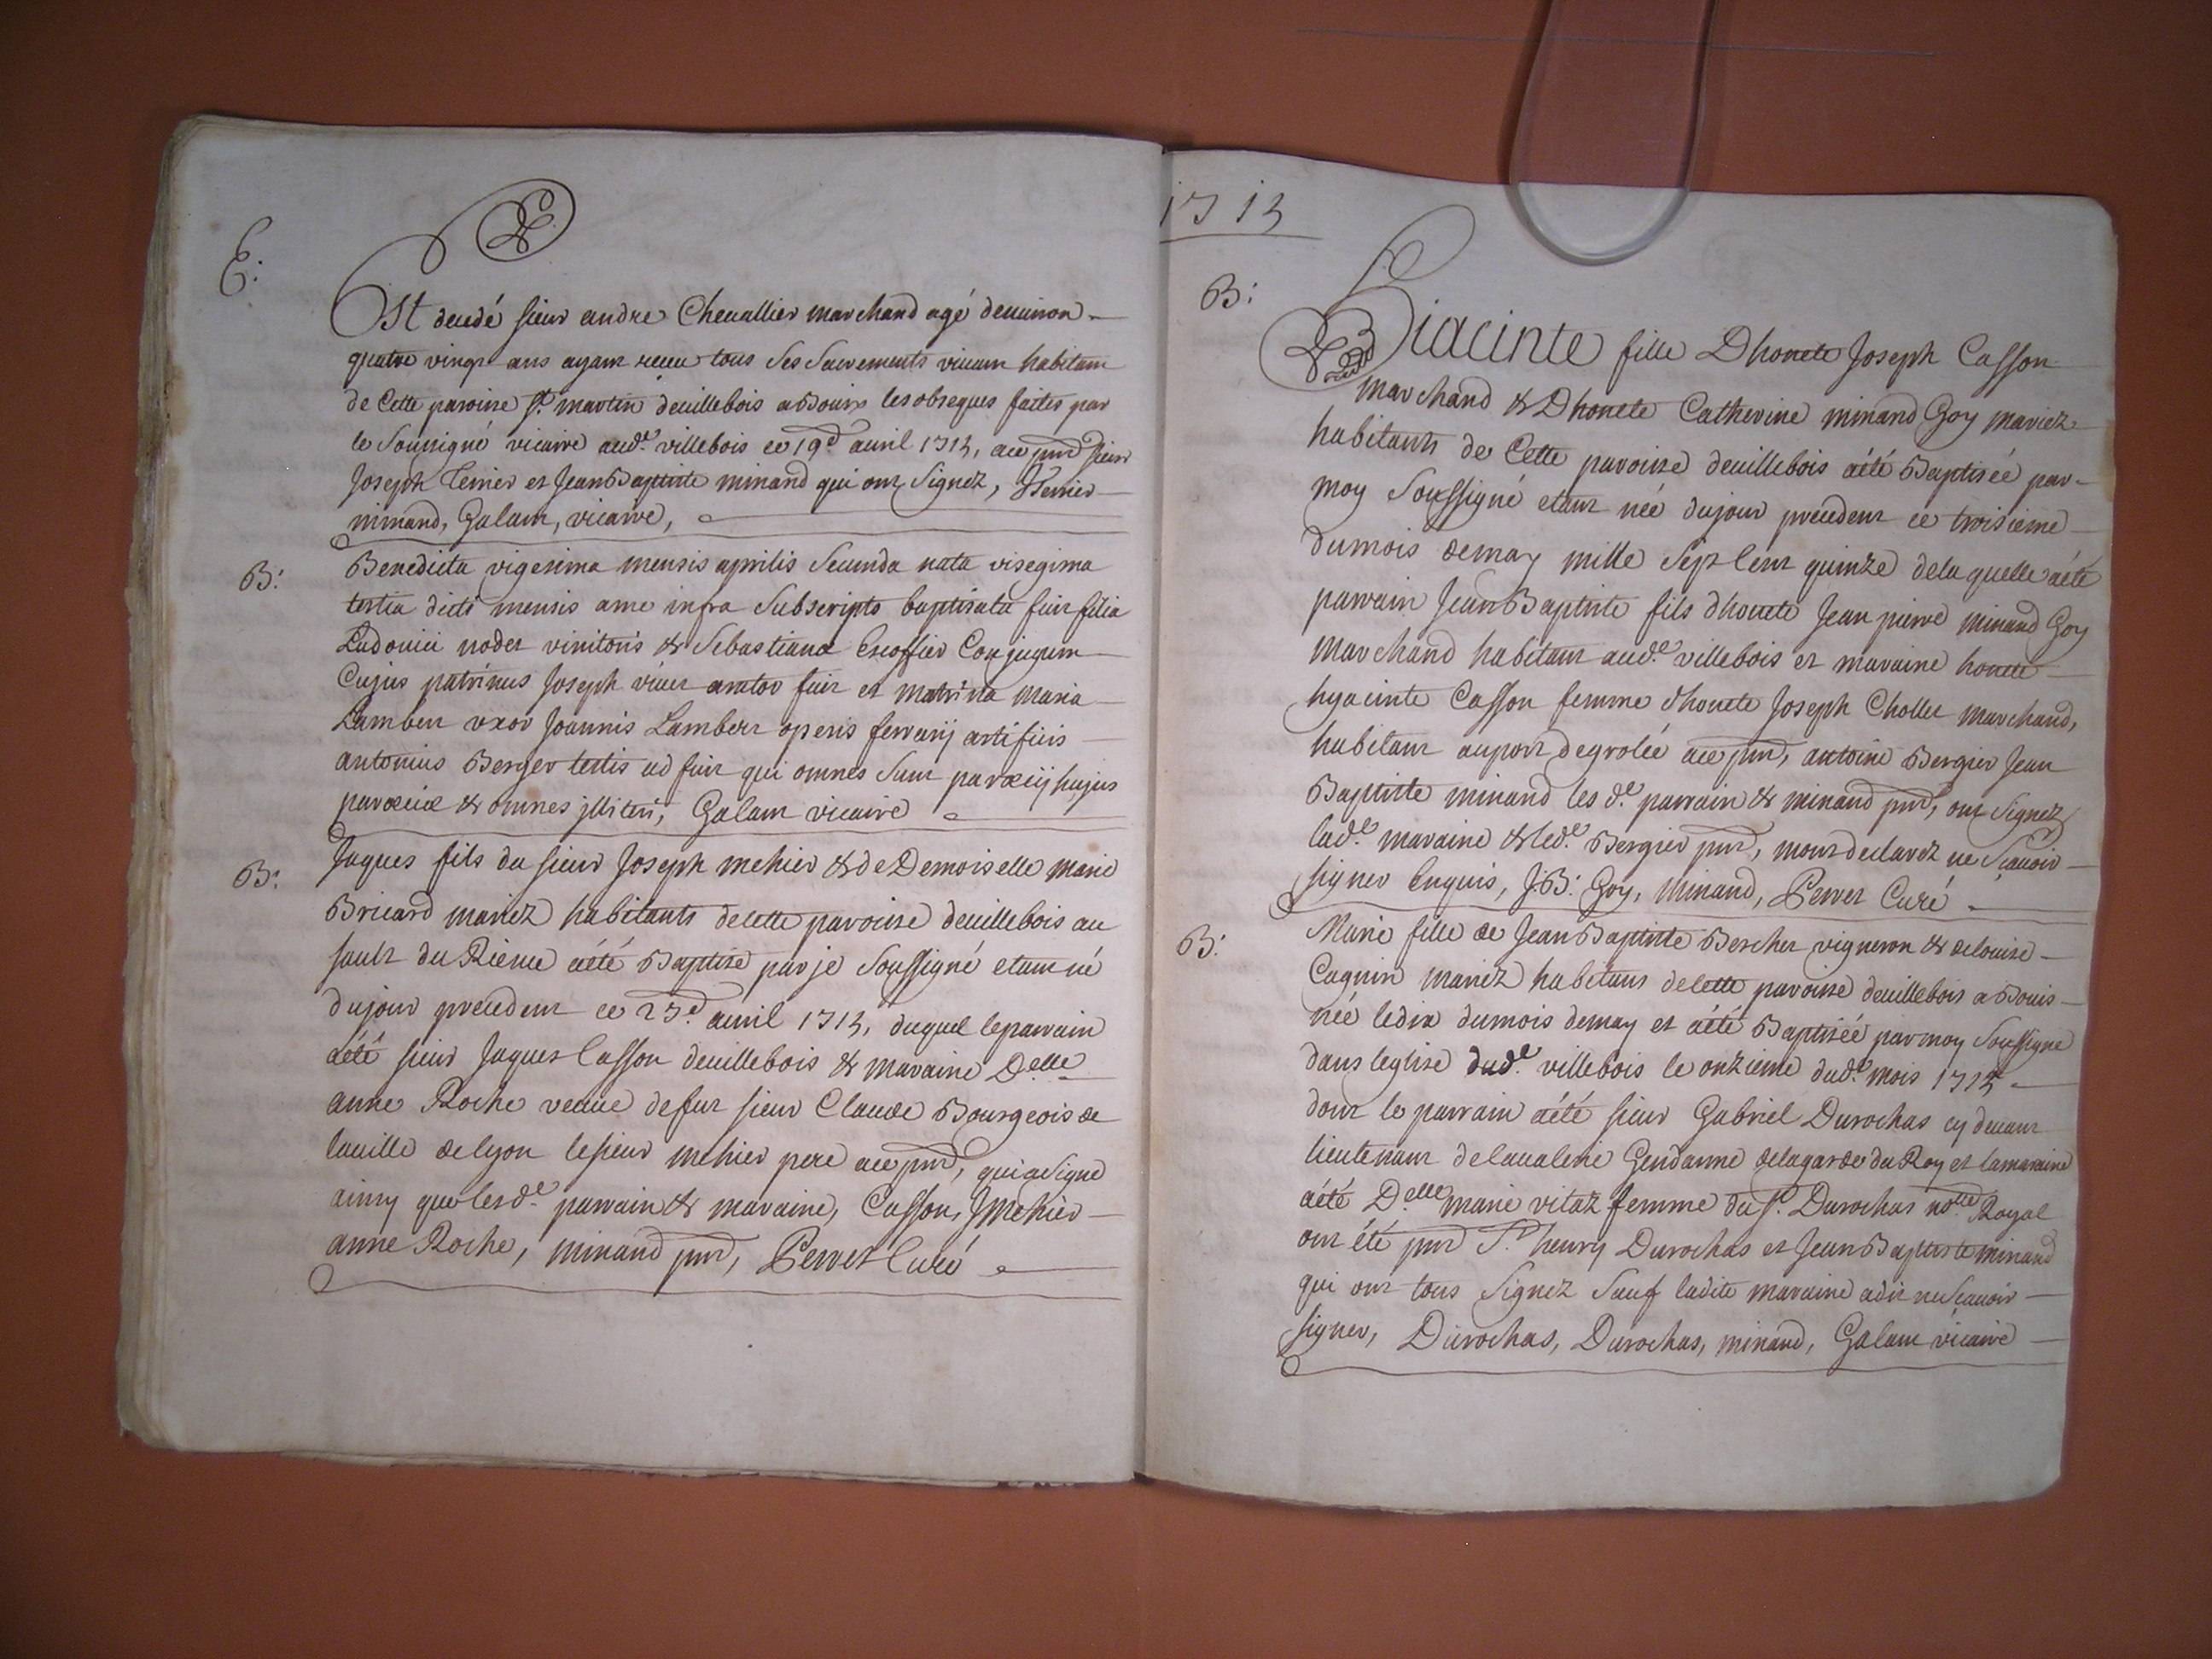 E:
Est decedé sieur andre Chevallier marchand agé denuiron
quatre vingt ans ayant receu tous ses Sacrements viuant habitant
de Cette paroisse St. martin deuillebois a Bouis les obseques faites par
le Soussigné vicaire aud.e villebois ce 19.d auril 1715, ace pnd sieur
Joseph Terrier et Jean Baptiste minand qui ont Signez, JTerrier
minand, Galant, vicaire,
B:
Benedicta vigesima mensis aprilis Secunda nata visegima
tertia dicti mensis ame infra Subscripto baptisata fuit filia
Ludovici noder vinitoris & Sebastianæ Escoffier Conjugum
Cujus patrinus Joseph viuer arator fuit et matrina maria
Lambert vxor Joannis Lambert operis ferrarij artificis
antonius Berger testis ad fuit qui omnes Sunt parœcij hujus
parœciæ & omnes jlliteri, Galant vicaire
B:
Jaques fils du sieur Joseph mehier & de Demoiselle marie
Bricard mariez habitants decette paroisse deuillebois au
sault du Rieme aété Baptisé par je Soussigné etant né
du jour precedent ce 25.d auril 1715, duquel leparrain
aété sieur Jaques Casson deuillebois & maraine Delle
anne Roche veuue defut sieur Claude Bourgeois de
lauille de lyon le sieur mehier pere ace pnd, qui a Signé
ainsy que les d.e parrain & maraine, Casson, JMehier
anne Roche, minand pnd, Perret Curé
1715
B:
Hiacinte fille Dhonete Joseph Casson
marchand & Dhonete Catherine minand Goy mariez
habitants de Cette paroisse deuillebois aété Baptisée par
moy Soussigné etant née dujour precedent ce troisieme
dumois demay mille Sept Cent quinze dela quelle aété
parrain Jean Baptiste fils dhonete Jean pierre minand Goy
marchand habitant aud.e villebois et maraine honete
hyacinte Casson femme dhonete Joseph Chollet marchand,
habitant auport degrolée ace pnd, antoine Bergier Jean
Baptiste minand les d.e parrain & minand pnd, ont Signez
lad.e maraine & led.e Bergier pnd, mont declarez ne Scauoir
signer Enquis, J.B: Goy, minand, Perret Curé
B:
Marie fille de Jean Baptiste Bercher vigneron & delouise
Cagnin mariez habitans decette paroisse deuillebois a Bouis
née ledix dumois demay et aété Baptisée parmoy Soussigné
dans leglise dud.e villebois le onzieme dud.e mois 1715
dont le parrain aété sieur Gabriel Durochas cy deuant
lieutenant delaualerie Gendarme delagarde du Roy et lamaraine
aété Delle marie vitaz femme du sr. Durochas nore Royal
ont été pnd Sr. henry Durochas et Jean Baptiste minand
qui ont tous Signez Sauf ladite maraine adit ne Scauoir
signer, Durochas, Durochas, minand, Galant vicaire